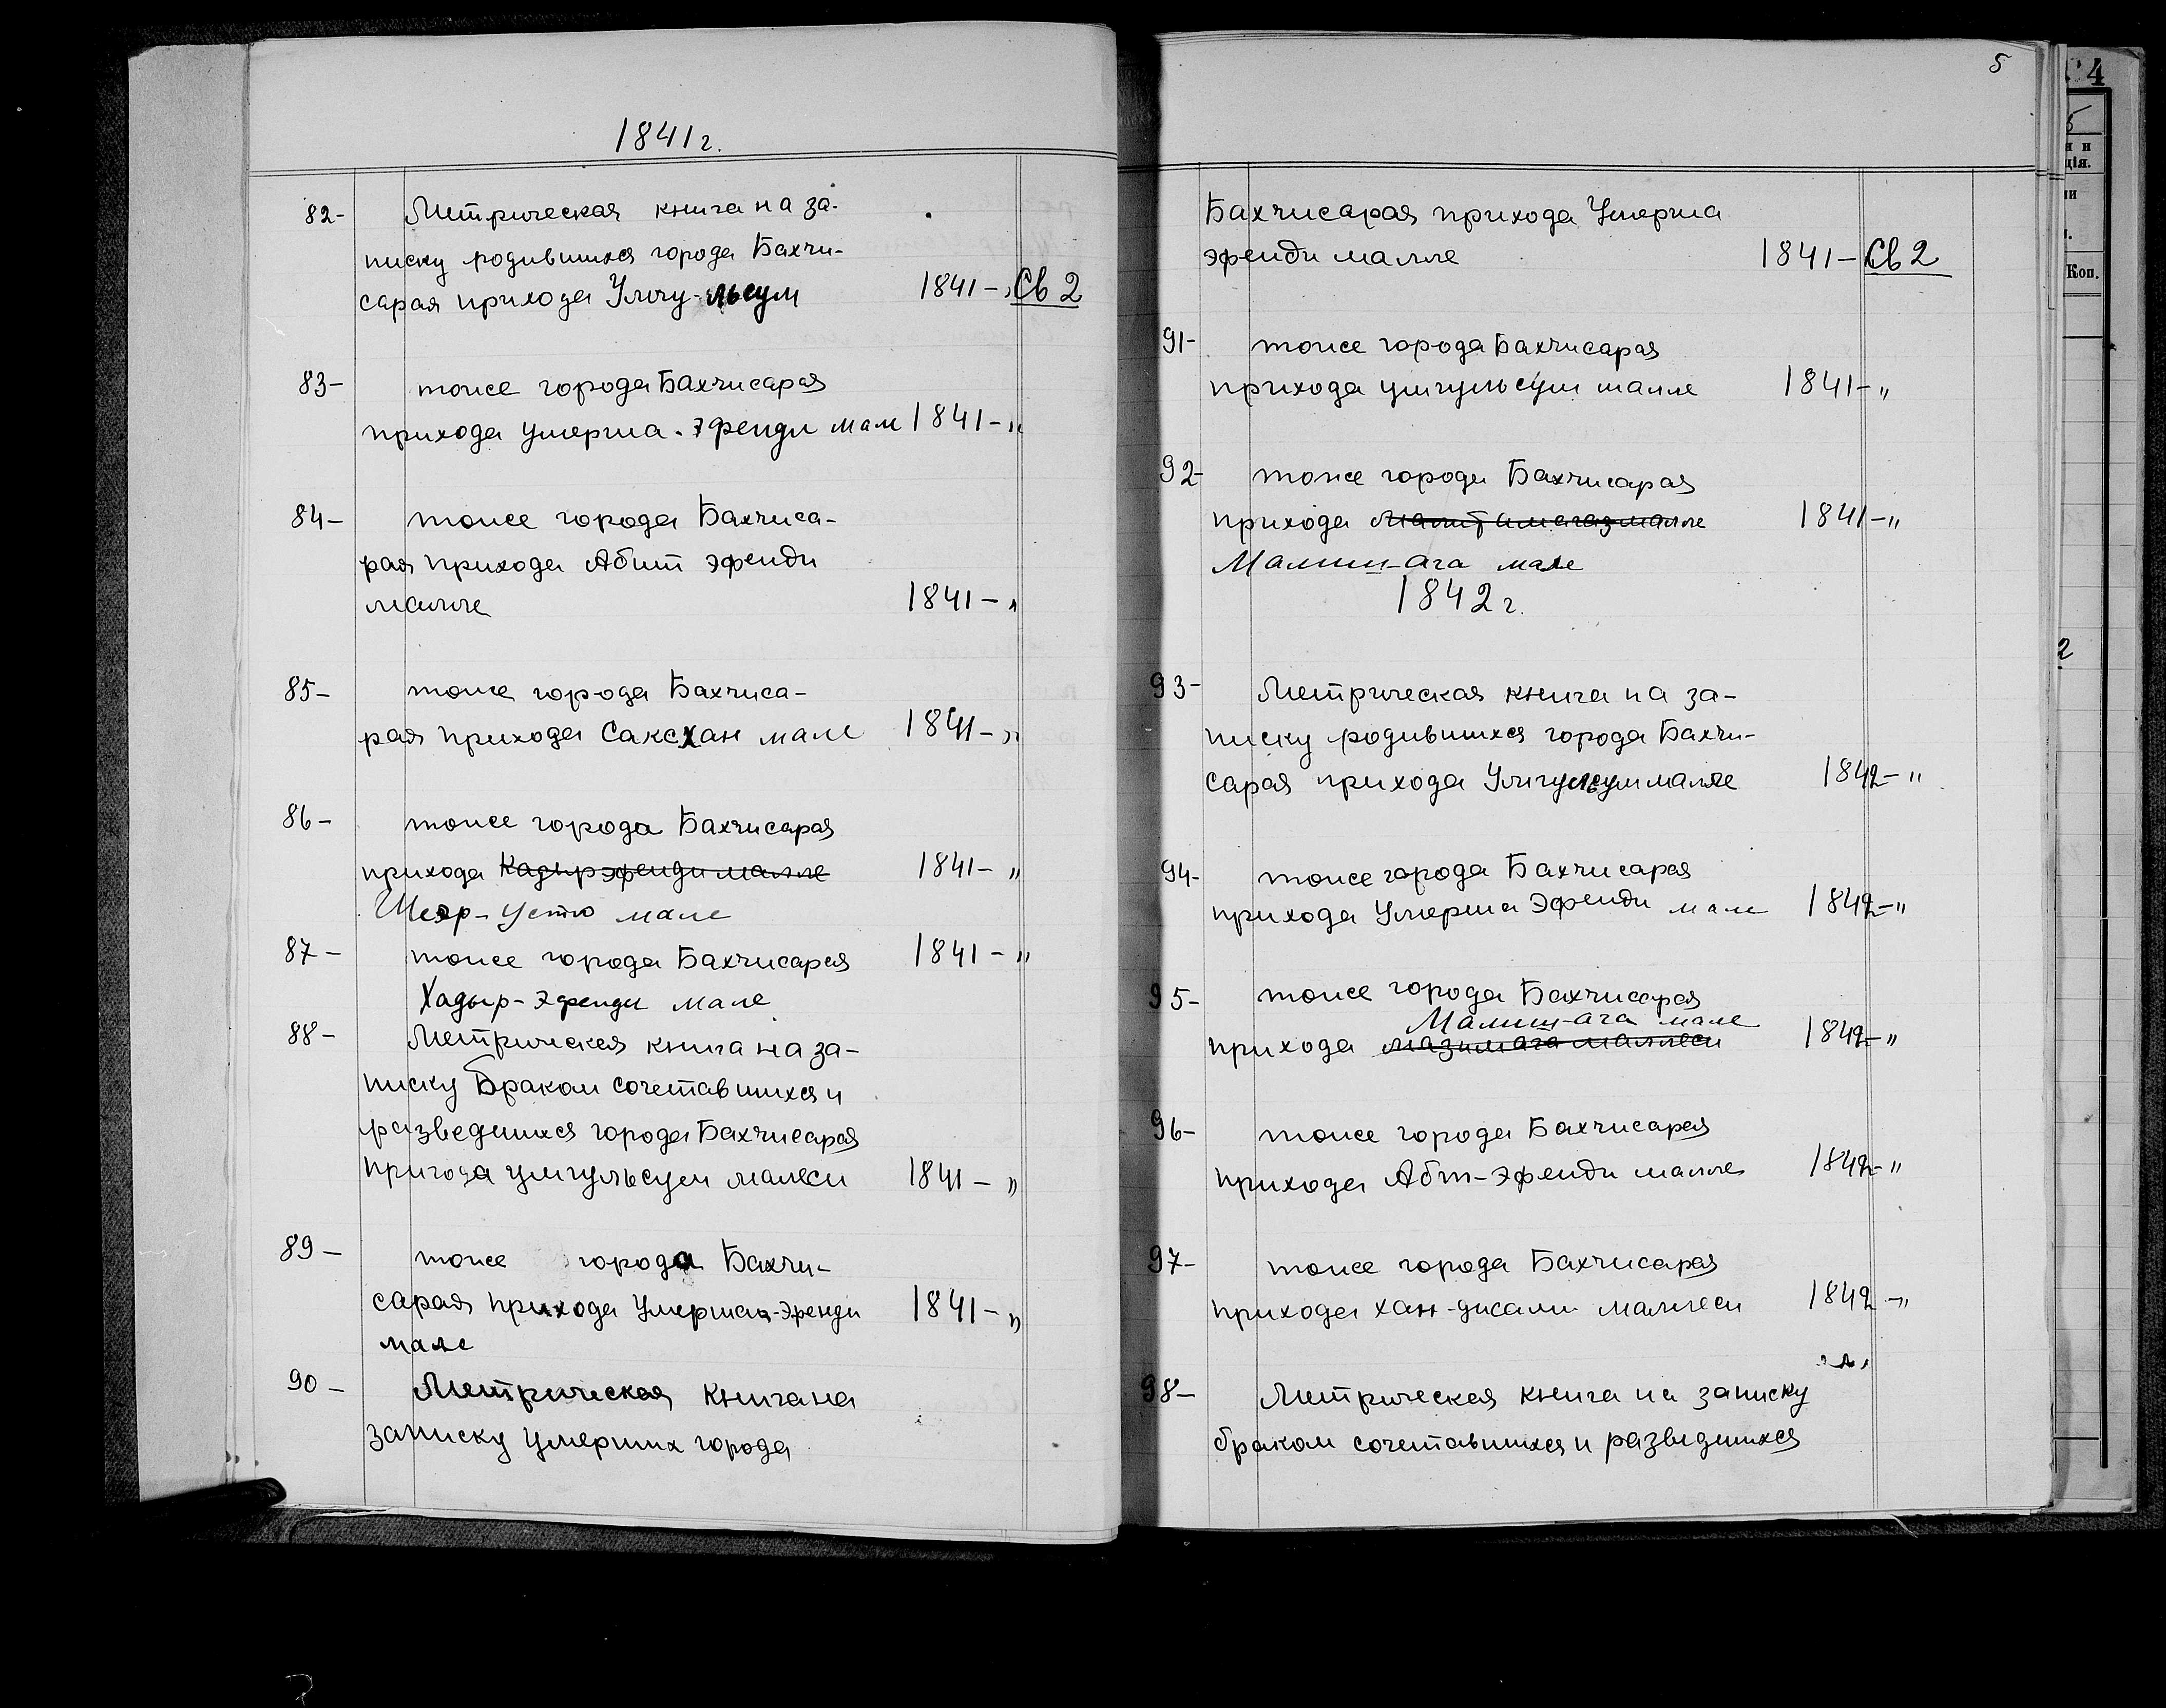 1841 г.
82- Метрическая книга на за-
писку родившихся города Бахчи-
сарая прихода Умгу-льсум 1841- Св 2
83- тоже города Бахчисарая
прихода умерша-Эфенди мале 1841-"
84- тоже города Бахчиса-
рая прихода Абит эфенди
малле 1841-"
85- тоже города Бахчиса-
рая прихода Саксхан мале 1841-"
86- тоже города Бахчисарая
прихода Кадырэфенди малле 1841-"
Шеэр-Устю мале
87- тоже города Бахчисарая 1841-"
Хадыр-Эфенди мале
88- Метрическая книга на за-
писку браком сочетавшихся и
разведшихся города Бахчисарая
прихода умгульсум малеси 1841-"
89- тоже города Бахчи-
сарая прихода Умерша-Эфенди 1841-"
мале
90- Метрическая книга на
записку умерших города
5
Бахчисарая прихода Умерша
эфенди малле 1841- Св 2
91- тоже города Бахчисарая
прихода умгульсум малле 1841-"
92- тоже города Бахчисарая
прихода 1841-"
Малиш-ага мале
1842 г.
93- Метрическая книга на за-
писку родившихся города Бахчи-
сарая прихода Умгульсум малле 1842-"
94- тоже города Бахчисарая
прихода Умерша Эфенди мале 1842-"
95- тоже города Бахчисарая
Малиш-ага мале
прихода мазимага маллеси 1842-"
96- тоже города Бахчисарая
прихода Абт-Эфенди малле 1842-"
97- тоже города Бахчисарая
прихода хан-джами маллеси 1842-"
98- Метрическая книга на записку
браком сочетавшихся и разведшихся
4
Коп.
2